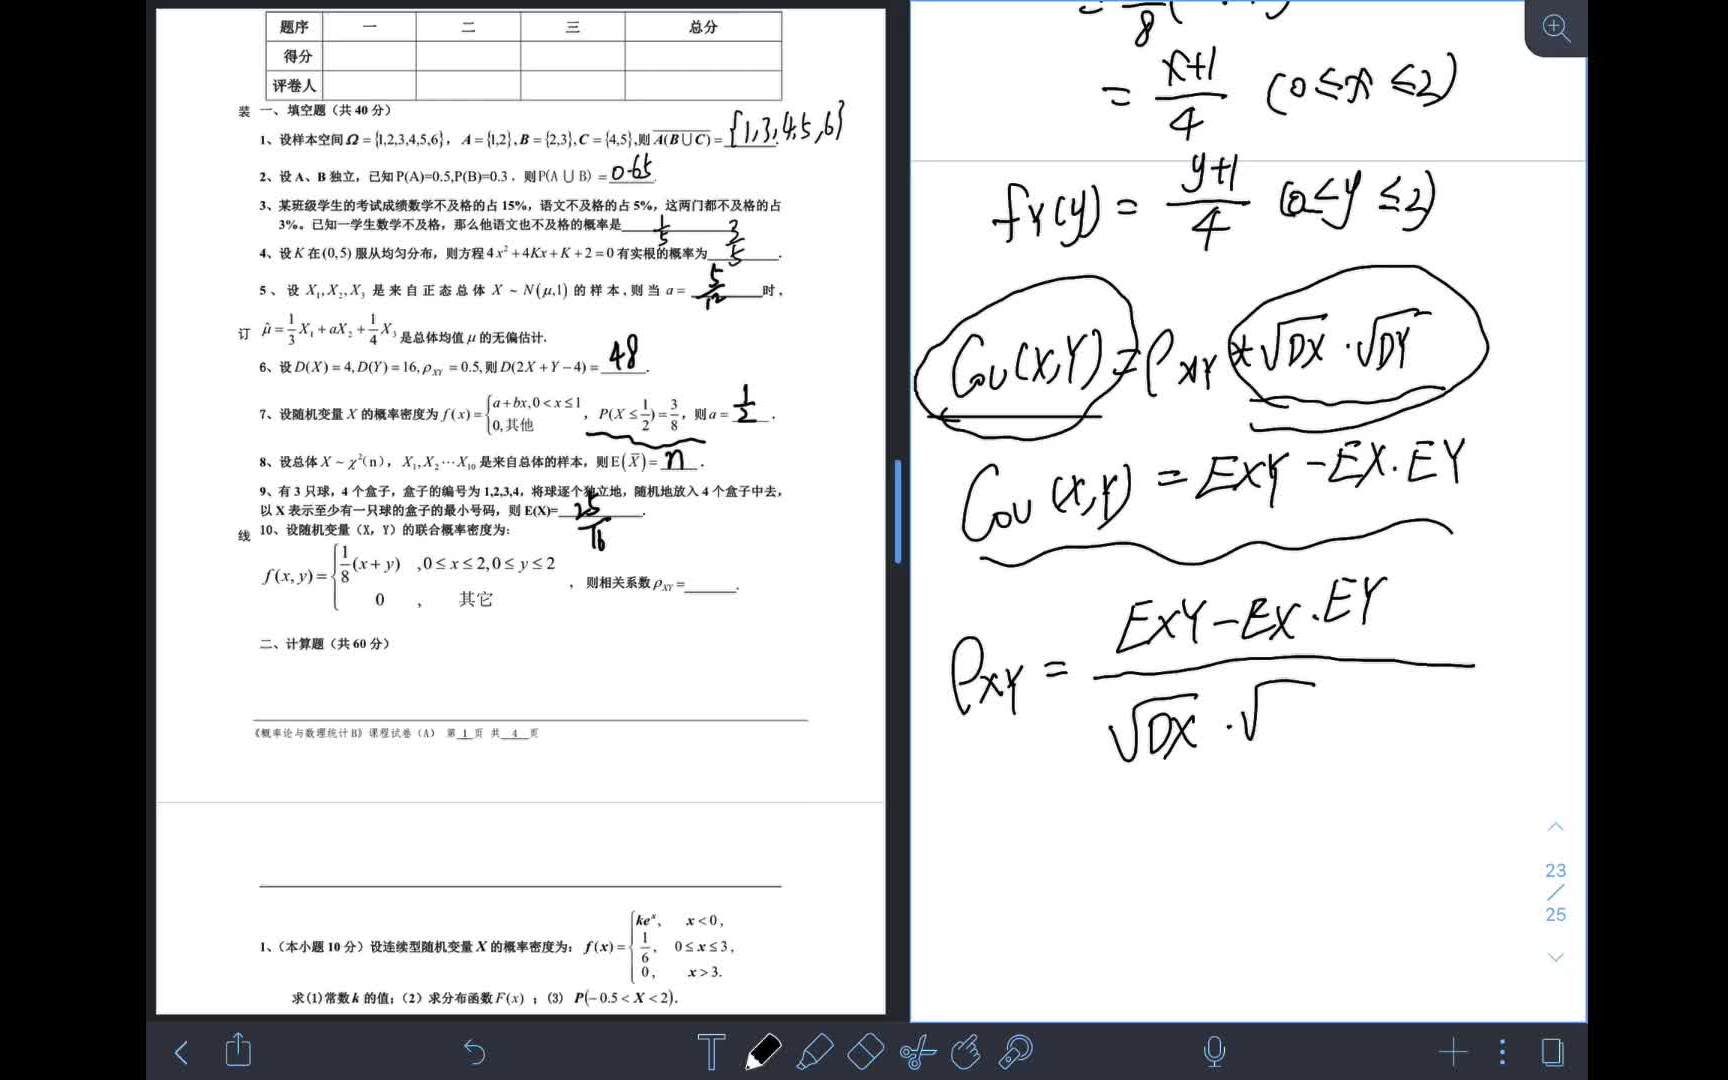 题序 一 二 三 总分
得分
评卷人
装 一、填空题（共 40 分）
1、设样本空间Ω = {1,2,3,4,5,6}，A = {1,2},B = {2,3},C = {4,5},则 \overline{A(B∪C)} = {1,3,4,5,6}.
2、设 A、B 独立，已知P(A)=0.5,P(B)=0.3．则P(A ∪ B) = 0.65.
3、某班级学生的考试成绩数学不及格的占 15%，语文不及格的占 5%，这两门都不及格的占
3%。已知一学生数学不及格，那么他语文也不及格的概率是 1/5
4、设 K 在(0,5) 服从均匀分布，则方程4x² +4Kx+K+2=0 有实根的概率为 3/5.
5、设 X₁,X₂,X₃ 是来自正态总体 X ~ N(μ,1) 的样本,则当 a = 5/12 时,
订 μ̂ = 1/3 X₁ + aX₂ + 1/4 X₃ 是总体均值 μ 的无偏估计.
6、设D(X)=4,D(Y)=16,ρ_XY =0.5,则D(2X+Y−4)= 48.
7、设随机变量 X 的概率密度为 f(x) = { a+bx,0<x≤1 ，P(X ≤ 1/2) = 3/8，则a = 1/2.
0,其他
8、设总体 X ~ χ²(n)，X₁,X₂⋯X₁₀ 是来自总体的样本，则E(X̄)= n.
9、有 3 只球，4 个盒子，盒子的编号为 1,2,3,4，将球逐个独立地，随机地放入 4 个盒子中去，
以 X 表示至少有一只球的盒子的最小号码，则 E(X)= 25/16.
线 10、设随机变量（X，Y）的联合概率密度为:
f(x,y) = { 1/8 (x+y) ,0≤x≤2,0≤y≤2 ，则相关系数ρ_XY = .
0 , 其它
二、计算题（共 60 分）
《概率论与数理统计B》课程试卷（A） 第 1 页 共 4 页
1、（本小题 10 分）设连续型随机变量 X 的概率密度为：f(x) = { keˣ, x<0,
1/6, 0≤x≤3,
0, x>3.
求(1)常数k 的值；(2）求分布函数F(x)；(3) P(−0.5<X<2).
= x+1/4 (0≤x≤2)
f_Y(y) = y+1/4 (0≤y≤2)
Cov(X,Y) = ρ_XY * √DX · √DY
Cov(X,Y) = EXY − EX·EY
ρ_XY = EXY−EX·EY
√DX · √
23
/
25
T